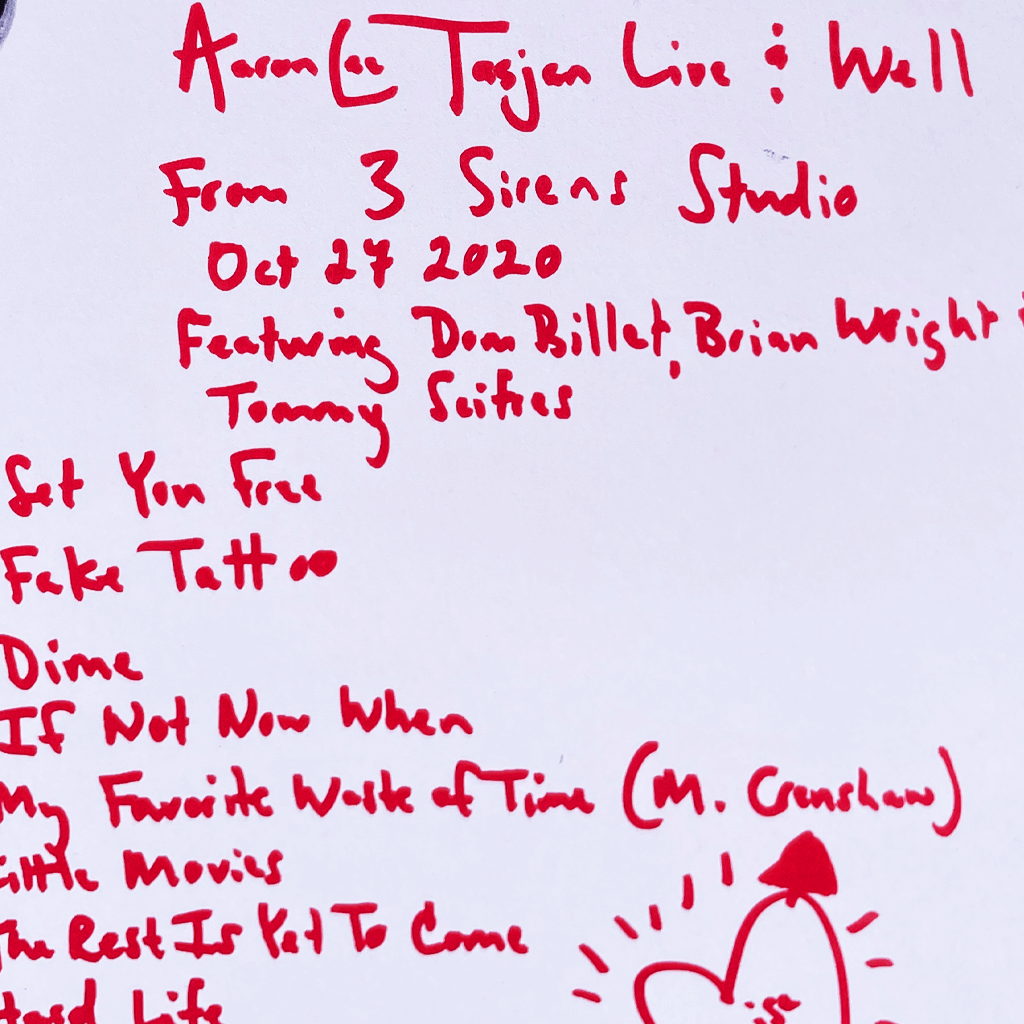 Aaron Lee Tasjan Live & Well
From 3 Sirens Studio
Oct 27 2020
Featuring Dom Billet, Brian Wright
Tommy Scifres
Set You Free
Fake Tattoo
Dime
If Not Now When
My Favorite Waste of Time (M. Crenshaw)
Little Movies
The Rest Is Yet To Come
Hard Life